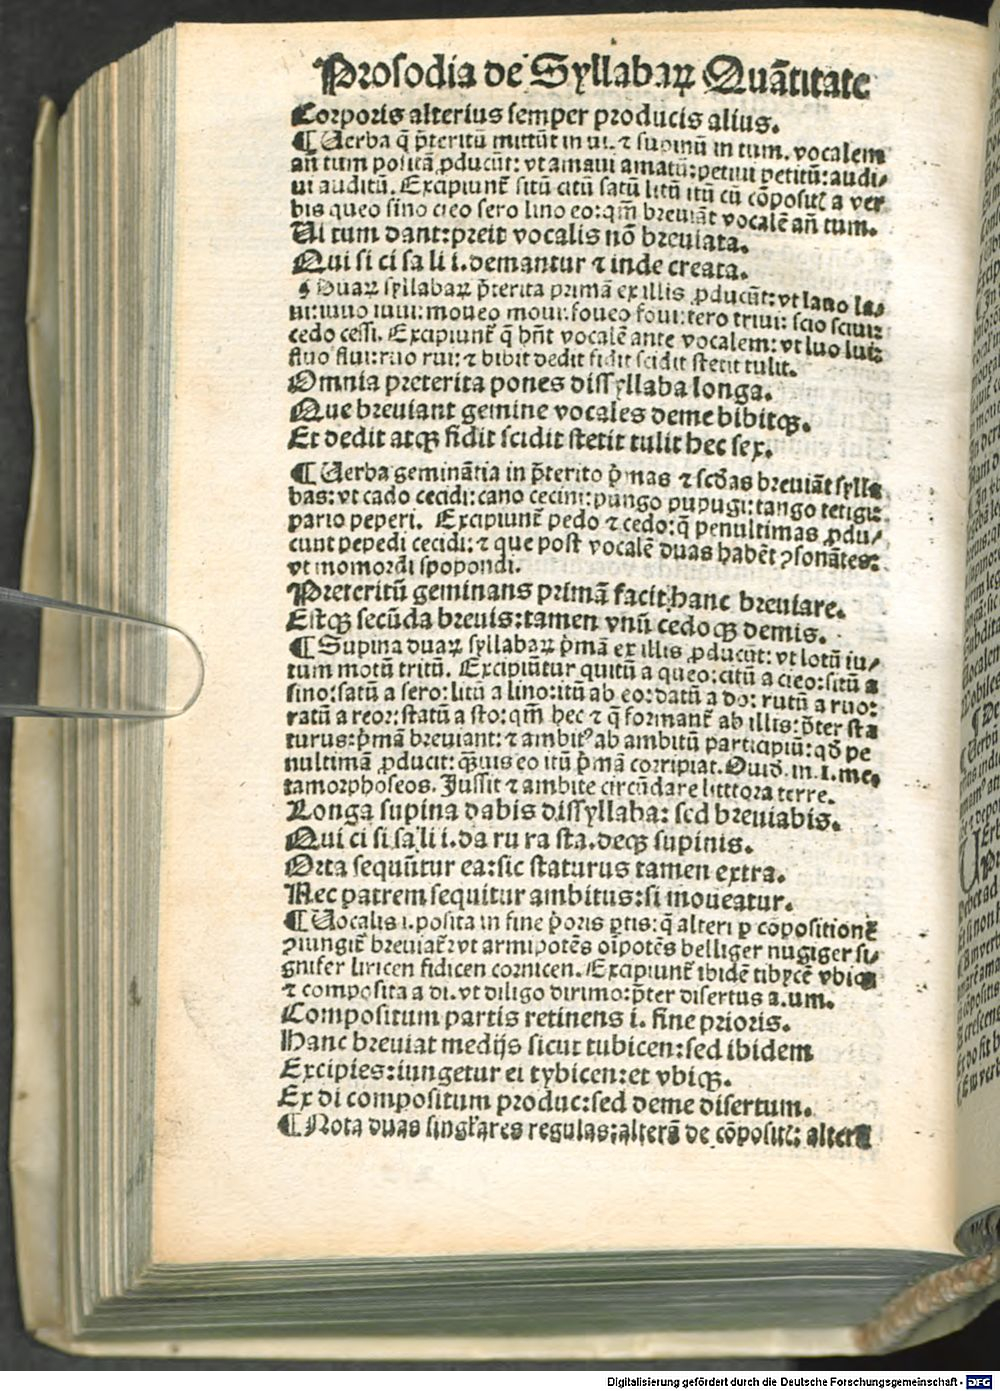 Prosodia de Syllabaꝝ Quātitate
Corporis alterius semper producis alius.
¶ Uerba q̄ p̄teritū mittūt in ui. ⁊ supinū in tum. vocalem
añ tum positā ꝓducūt: vt amaui amatū: petiui petitū: audi/
ui auditū. Excipiunt̄ sitū citū satū litū itū cū cōposit̄ a ver
bis queo sino cieo sero lino eo: qm̄ breuiāt vocalē añ tum.
Ui tum dant: preit vocalis nō breuiata.
Qui si ci sa li i. demantur ⁊ inde creata.
¶ Duaꝝ syllabaꝝ p̄terita primā ex illis ꝓducūt: vt lauo la/
ui: iuuo iuui: moueo moui: foueo foui: tero triui: scio sciui:
cedo cessi. Excipiunt̄ q̄ hn̄t vocalē ante vocalem: vt luo lui:
fluo flui: ruo rui: ⁊ bibit dedit fidit scidit stetit tulit.
Omnia preterita pones dissyllaba longa.
Que breuiant gemine vocales deme bibitqꝫ.
Et dedit atqꝫ fidit scidit stetit tulit hec sex.
¶ Uerba geminātia in p̄terito p̄mas ⁊ scd̄as breuiāt sylla
bas: vt cado cecidi: cano cecini: pungo pupugi: tango tetigi:
pario peperi. Excipiunt̄ pedo ⁊ cedo: q̄ penultimas ꝓdu/
cunt pepedi cecidi: ⁊ que post vocalē duas habēt ꝯsonātes:
vt momordi spopondi.
Preteritū geminans primā facit hanc breuiare.
Estqꝫ secūda breuis: tamen vnū cedoqꝫ demis.
¶ Supina duaꝝ syllabaꝝ p̄mā ex illis ꝓducūt: vt lotū iu/
tum motū tritū. Excipiūtur quitū a queo: citū a cieo: sitū a
sino: satū a sero: litū a lino: itū ab eo: datū a do: rutū a ruo:
ratū a reor: statū a sto: qm̄ hec ⁊ q̄ formant̄ ab illis: p̄ter sta
turus: p̄mā breuiant: ⁊ ambitꝰ ab ambitū participiū: qd̄ pe
nultimā ꝓducit: qꝫuis eo itū p̄mā corripiat. Ouid. in. i. me/
tamorphoseos. Jussit ⁊ ambite circūdare litttora terre.
Longa supina dabis dissyllaba: sed breuiabis.
Qui ci si sa li i. da ru ra sta. deqꝫ supinis.
Orta sequūtur ea: sic staturus tamen extra.
Nec patrem sequitur ambitus: si moueatur.
¶ Uocalis i. posita in fine p̄oris ꝑtis: q̄ alteri ꝑ cōpositionē
ꝯiungit̄ breuiat̄: vt armipotēs oīpotēs belliger nugiger si/
gnifer liricen fidicen cornicen. Excipiunt̄ ibidē tibycē vbiqꝫ
⁊ composita a di. vt diligo dirimo: p̄ter disertus a. um.
Compositum partis retinens i. fine prioris.
Hanc breuiat medijs sicut tubicen: sed ibidem
Excipies: iungetur ei tybicen: et vbiqꝫ.
Ex di compositum produc: sed deme disertum.
¶ Nota duas singl̄ares regulas: alterā de cōposit̄: alterā
Digitalisierung gefördert durch die Deutsche Forschungsgemeinschaft - DFG